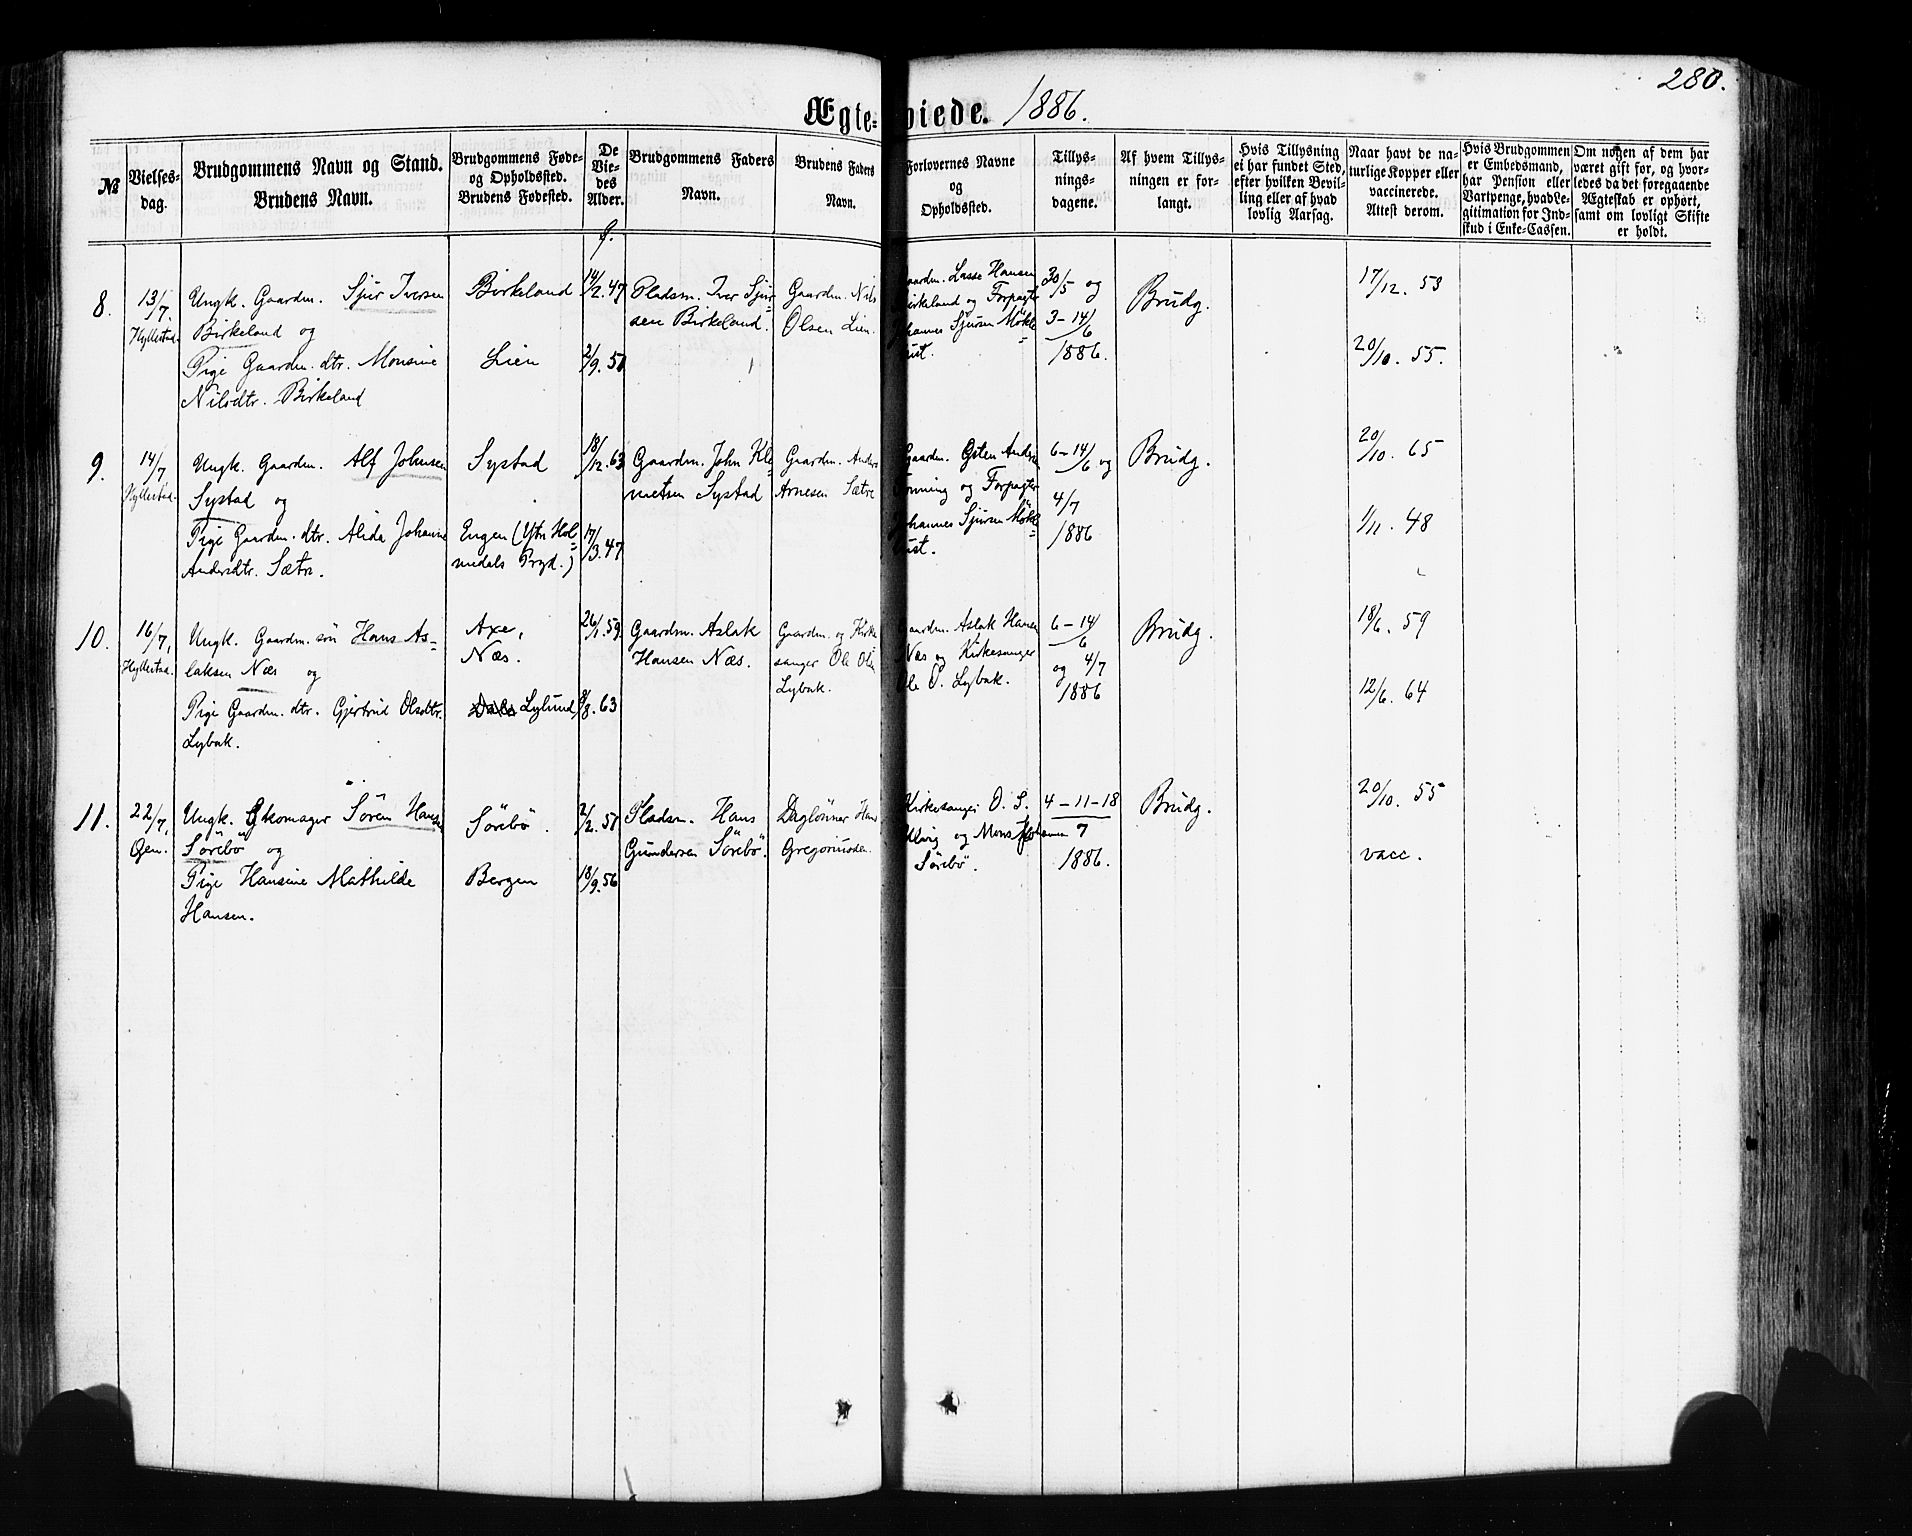 280.
Ægte-viede. 1886.
№
Vielses-
dag.
Brudgommens Navn og Stand.
Brudens Navn.
Brudgommens Føde-
og Opholdssted.
Brudens Fødested.
De
Vie-
des
Alder.
f.
Brudgommens Faders
Navn.
Brudens Faders
Navn.
Forlovernes Navne
og
Opholdssted.
Tillys-
nings-
dagene.
Af hvem Tillys-
ningen er for-
langt.
Hvis Tillysning
ei har fundet Sted,
efter hvilken Bevil-
ling eller af hvad
lovlig Aarsag.
Naar havt de na-
turlige Kopper eller
vaccinerede.
Attest derom.
Hvis Brudgommen
er Embedsmand,
har Pension eller
Vartpenge, hvad Le-
gitimation for Ind-
skud i Enke-Cassen.
Om nogen af dem har
været gift før, og hvor-
ledes da det foregaaende
Ægteskab er ophørt,
samt om lovligt Skifte
er holdt.
8.
13/7.
Hyllestad.
Ungk. Gaardm. Sjur Iversen
Birkeland og
Pige Gaardm. dtr. Monsine
Nilsdtr. Birkeland
Birkeland
Lien
14/2. 47
2/9. 51
Pladsm. Iver Sjur-
sen Birkeland.
Gaardm. Nils
Olsen Lien.
aardm. Lasse Hansen
irkeland og Forpagter
hannes Sjursen Møkle-
ust.
30/5 og
3-14/6
1886.
Brudg.
17/12. 53
20/10. 55.
9.
14/7
Hyllestad.
Ungk. Gaardm. Alf Johnsen
Systad og
Pige Gaardm. dtr. Alida Johanne
Andersdtr. Sætre.
Systad
Engen (Ytr. Hol-
medals Prgd.)
18/12. 63
17/3. 47
Gaardm. John Kle-
metsen Systad
Gaardm. Anders
Arnesen Sætre
Gaardm. Gsten Anders
onning og Forpagter
hannes Sjursen Møkle-
ust.
6-14/6 og
4/7
1886
Brudg.
20/10. 65
1/11. 48
10.
16/7,
Hyllestad.
Ungk. Gaardm. søn Hans As-
laksen Næs og
Pige Gaardm. dtr. Gjertrud Olsdtr.
Lybæk.
Axe,
Næs.
Lylund
26/1. 59.
8/8. 63
Gaardm. Aslak
Hansen Næs.
Gaardm. og Kirke-
sanger Ole Olsen
Lybæk.
aardm. Aslak Hansen
Næs og Kirkesanger
Ole O. Lybæk.
6-14/6
og 4/7
1886
Brudg.
18/6. 59
12/6. 64
11.
22/7,
Øen.
Ungk. Skomager Søren Hansen
Sørebø og
Pige Hansine Mathilde
Hansen.
Sørebø.
Bergen
2/2. 51
18/9. 56
Pladsm. Hans
Gundersen Sørebø.
Daglønner Hans
Gregoriusen.
Kirkesanger O. S.
og Mons
Sørebø.
4-11-18
7
1886.
Brudg.
20/10. 55
vacc.